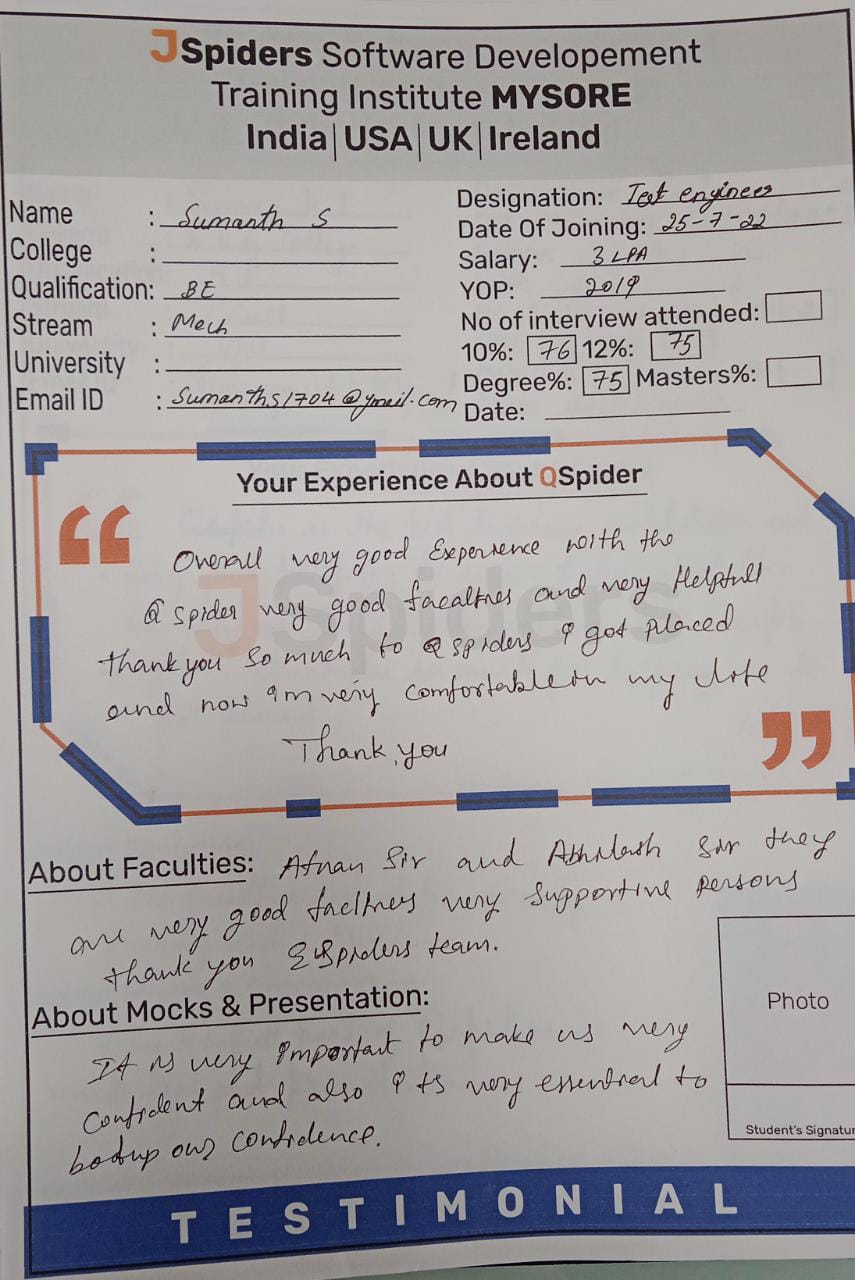 JSpiders Software Developement
Training Institute MYSORE
India|USA|UK|Ireland
Name : Sumanth S
College :
Qualification: BE
Stream : Mech
University :
Email ID : Sumanths1704@gmail.com
Designation: Test engineer
Date Of Joining: 25-7-22
Salary: 3 LPA
YOP: 2019
No of interview attended:
10%: 76 12%: 75
Degree%: 75 Masters%:
Date:
Your Experience About QSpider
“
Overall very good Experience with the
Q spider very good facalties and very Helpfull
thank you so much to Q spiders I got placed
and now Im very comfortable in my life
Thank you
”
JSpiders
About Faculties: Afnan Sir and Abhilash Sir they
are very good faclties very supportive persons
thank you QSpiders team.
About Mocks & Presentation:
It is very important to make us very
confident and also its very essential to
our confidence.
Photo
Student's Signatur
TESTIMONIAL